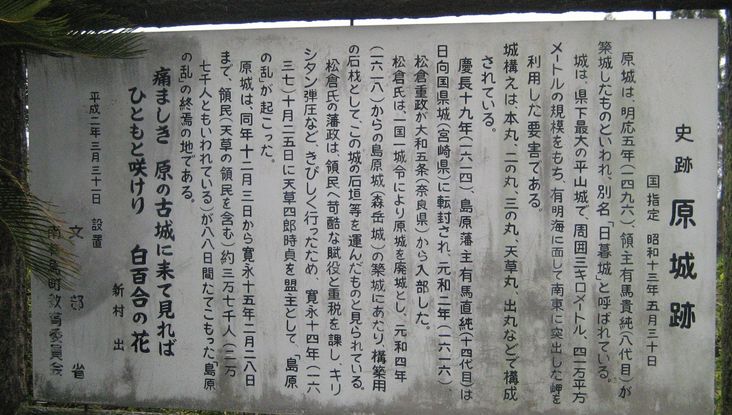 史跡 原城跡
国指定 昭和十三年五月三十日
原城は、明応五年(一四九六)、領主有馬貴純(八代目)が
築城したものといわれ、別名「日暮城」と呼ばれている。
城は、県下最大の平山城で、周囲三キロメートル、四一万平方
メートルの規模をもち、有明海に面して南東に突出した岬を
利用した要害である。
城構えは、本丸、二の丸、三の丸、天草丸、出丸などで構成
されている。
慶長十九年(一六一四)、島原藩主有馬直純(十四代目)は
日向国県城(宮崎県)に転封され、元和二年(一六一六)
松倉重政が大和五条(奈良県)から入部した。
松倉氏は、一国一城令により原城を廃城とし、元和四年
(一六一八)からの島原城(森岳城)の築城にあたり、構築用
の石材として、この城の石垣等を運んだものと見られている。
松倉氏の藩政は、領民へ苛酷な賦役と重税を課し、キリ
シタン弾圧など、きびしく行ったため、寛永十四年(一六
三七)十月二五日に天草四郎時貞を盟主として、「島原
の乱」が起こった。
原城は、同年十二月三日から寛永十五年二月二八日
まで、領民(天草の領民を含む)約三万七千人(二万
七千人ともいわれている)が八八日間たてこもった「島原
の乱」の終焉の地である。
痛ましき 原の古城に来て見れば
ひともと咲けり 白百合の花
新村 出
平成二年三月三十一日 設置
文部省
南有馬町教育委員会